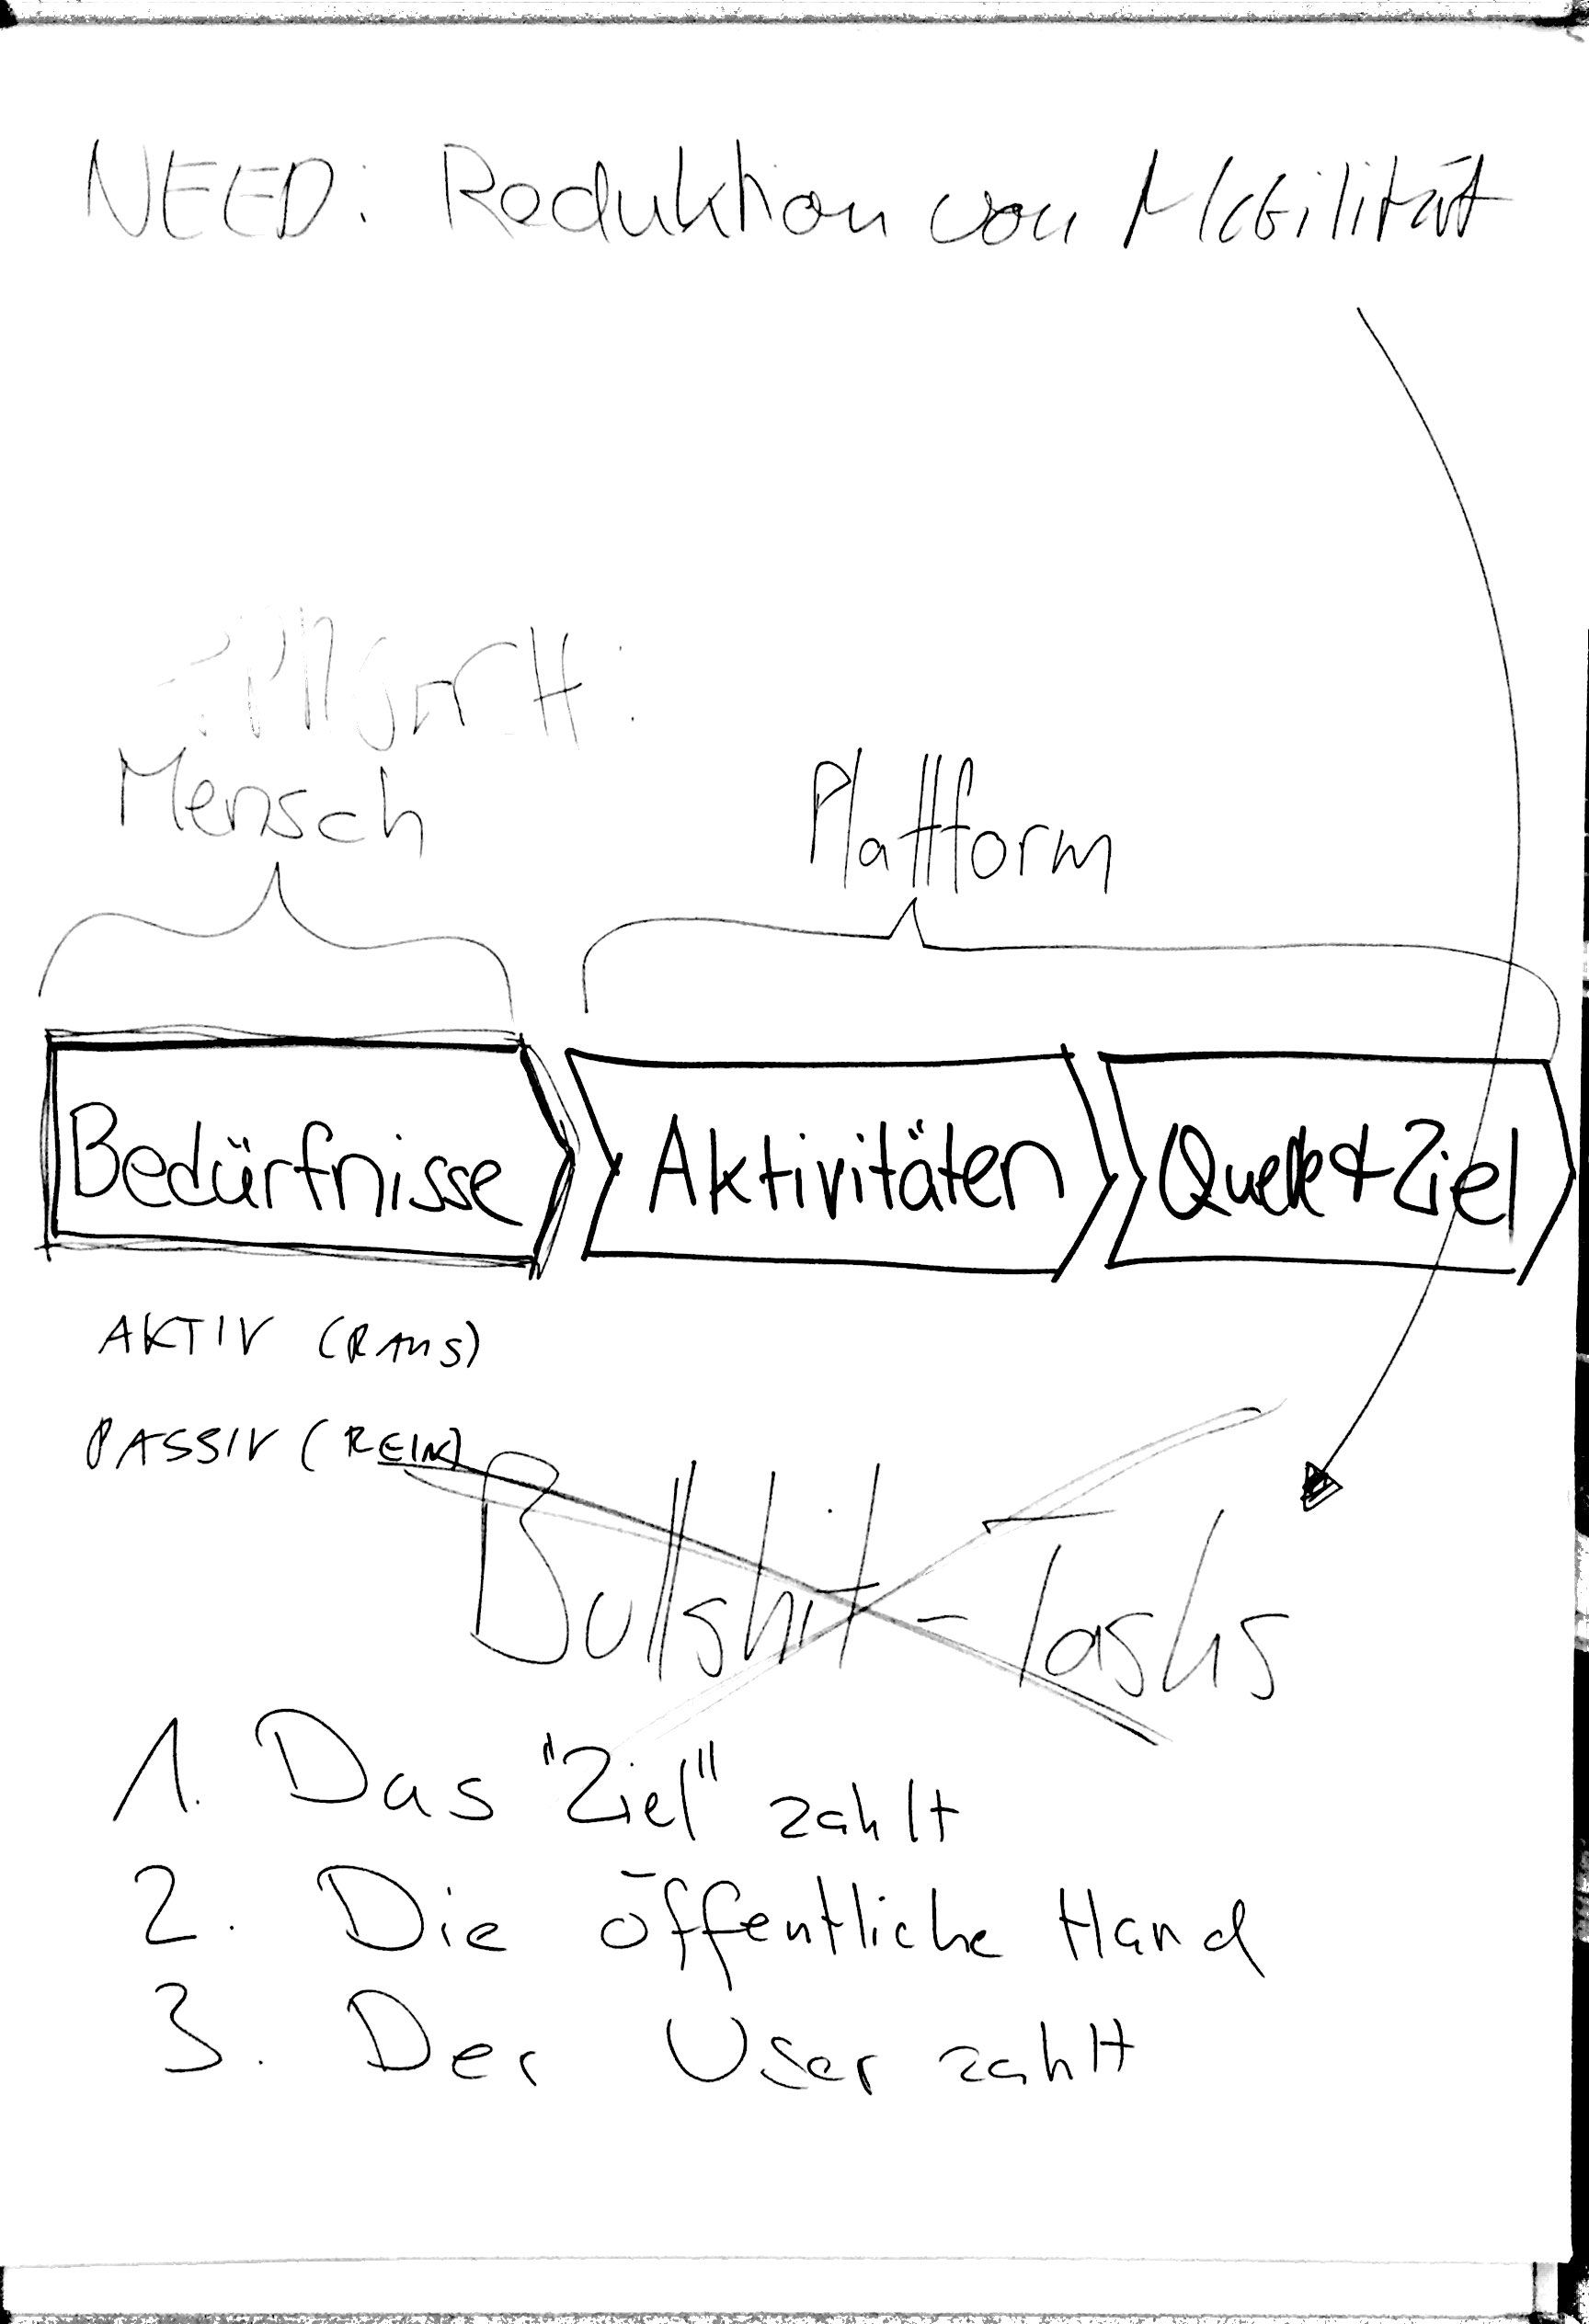 NEED: Reduktion von Mobilität
Mensch
Plattform
Bedürfnisse
Aktivitäten
Quelle & Ziel
AKTIV (RAUS)
PASSIV (REIN)
Bullshit-Tasks
1. Das "Ziel" zahlt
2. Die öffentliche Hand
3. Der User zahlt